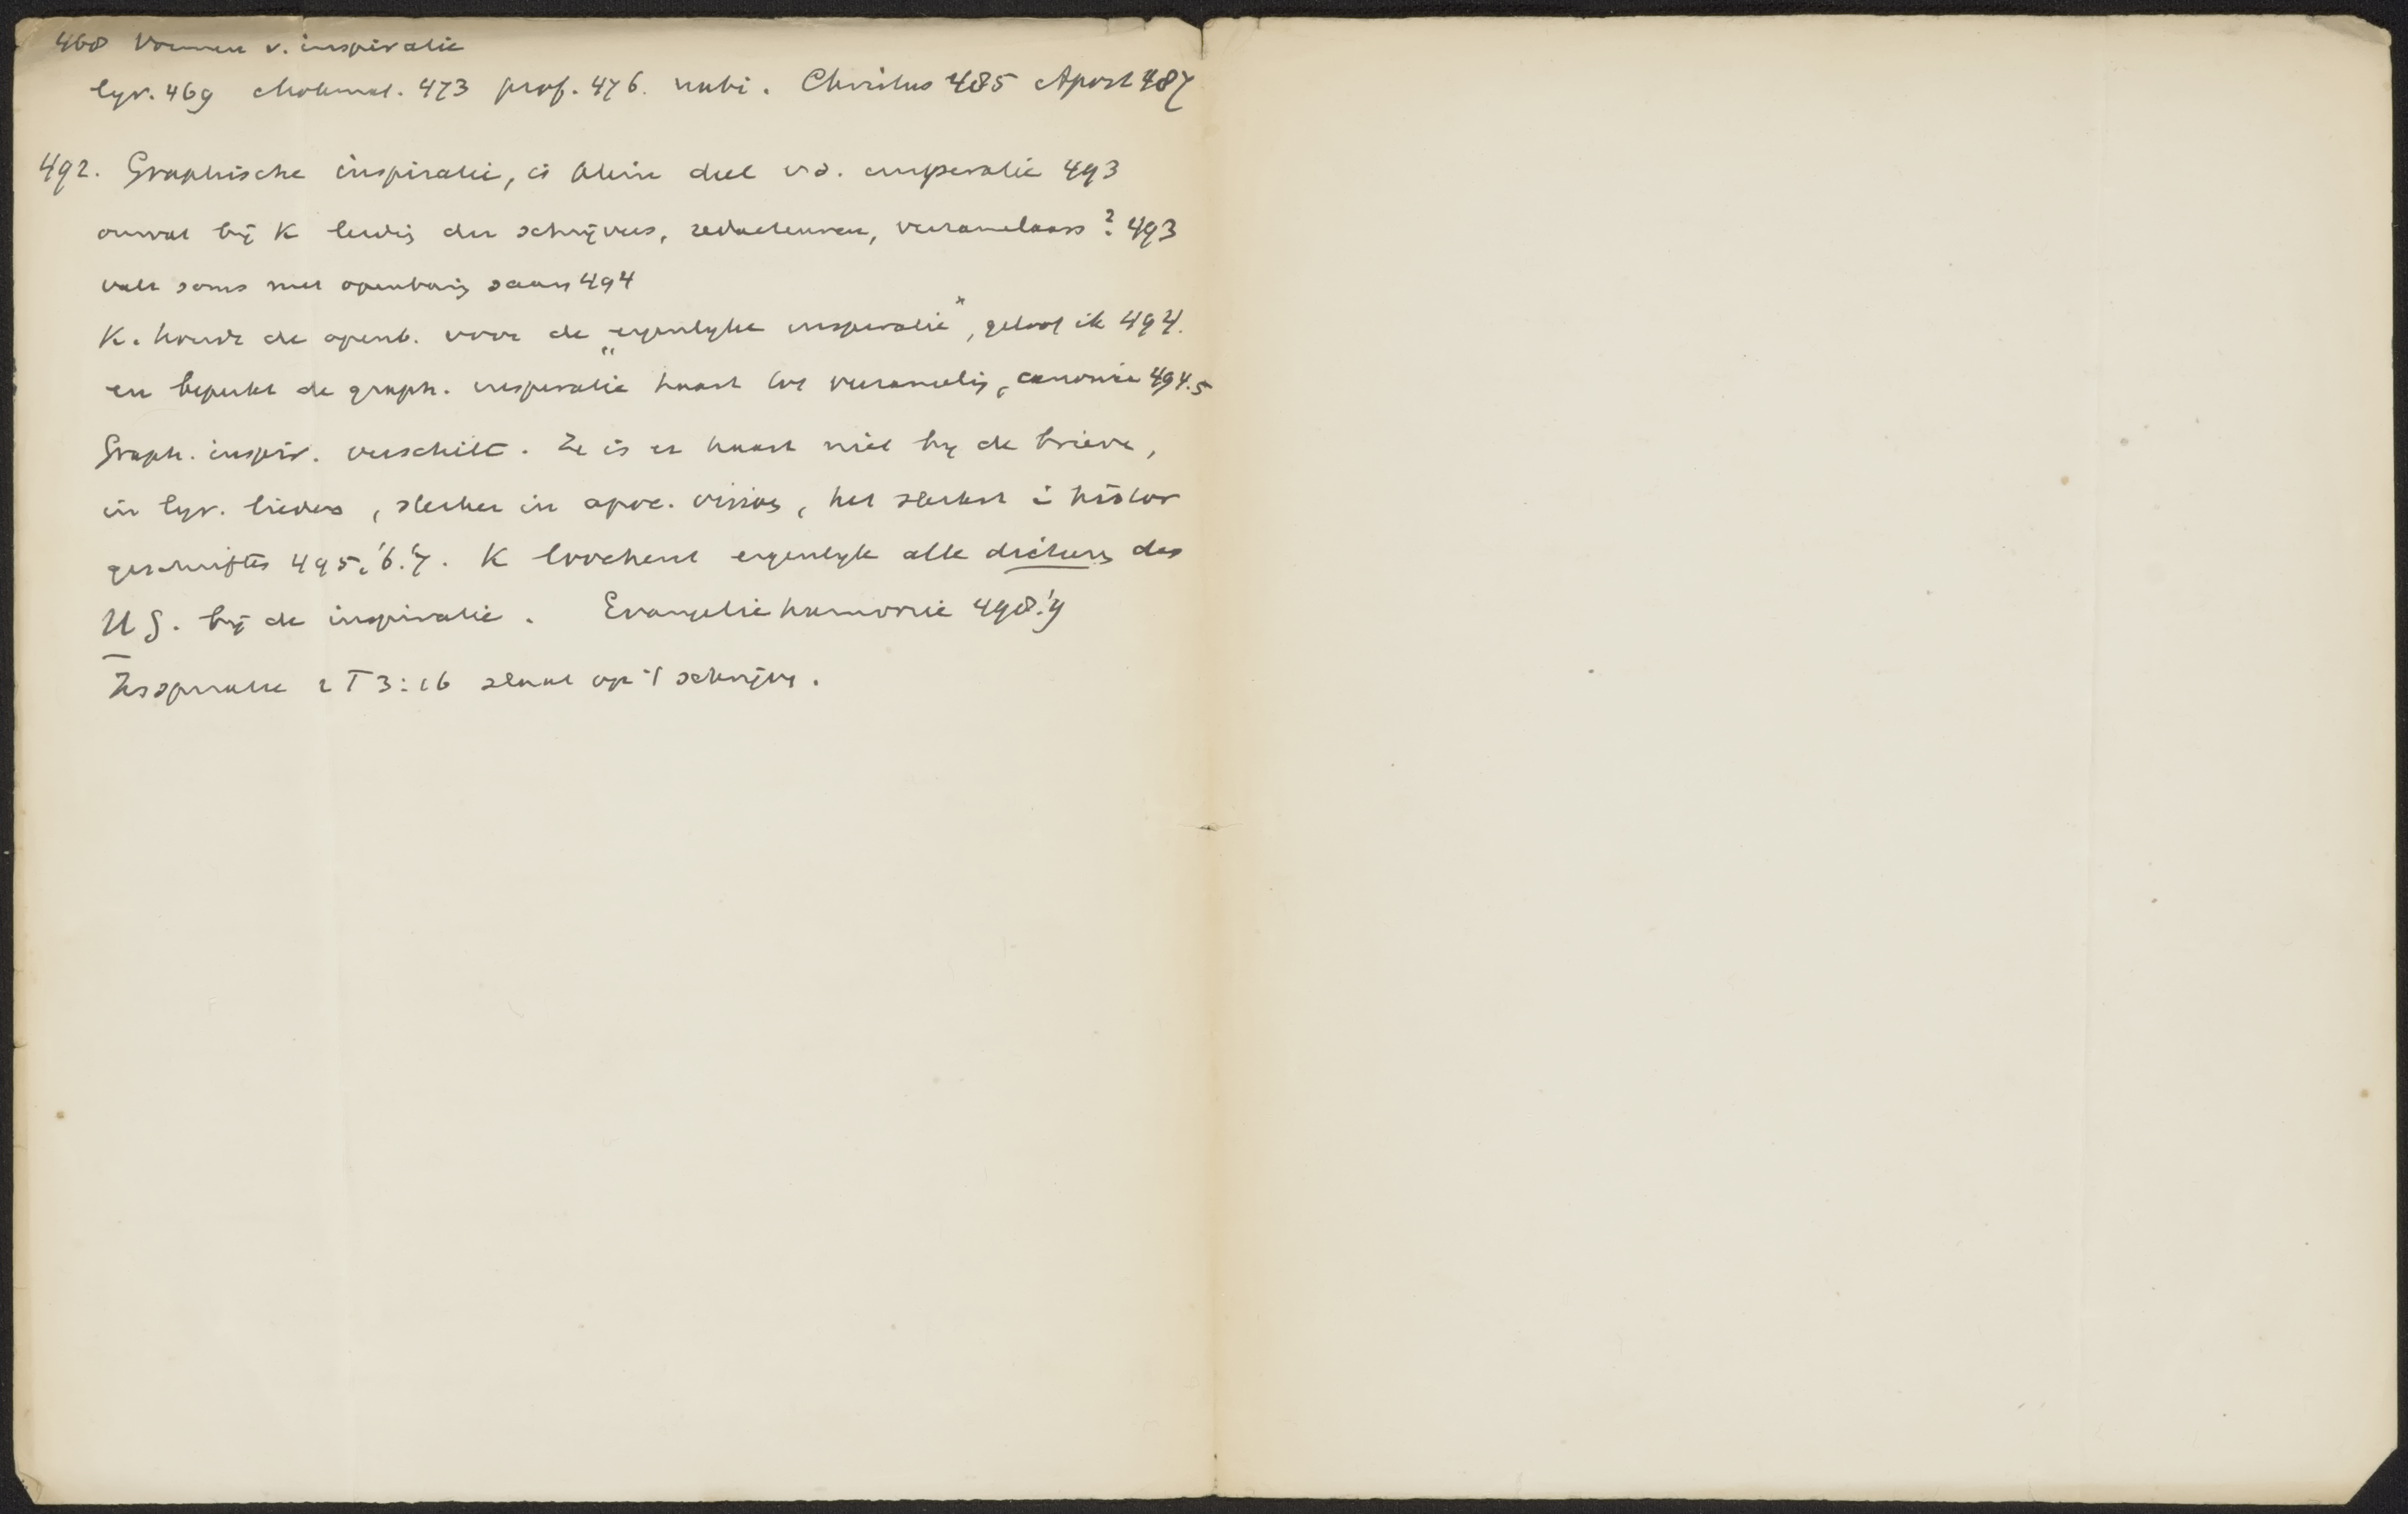 468 Vormen v. inspiratie
lyr. 469 chokmat. 473 prof. 476. nabi. Christus 485 Apost 487
492. Graphische inspiratie, is klein deel v.d. inspiratie 493
omvat bij K leidig der schrijvers, redacteuren, verzamelaars? 493
valt soms met openbarig saam 494
K. houdt de openb. voor de „eigenlyke inspiratie", geloof ik 494.
en beperkt de graph. inspiratie haast tot verzamelig, canonie 494.5
Graph. inspir. verschilt. Ze is er haast niet by de brieve,
in lyr. liedere, sterker in apoc. visioe, het sterkst i histor
geschrifte 495.'6.'7. K loochent eigenlyk alle dictere des
H G. bij de inspiratie. Evangelieharmonie 498.'9
Inspiratie 2 T 3:16 slaat op 't schrijve.